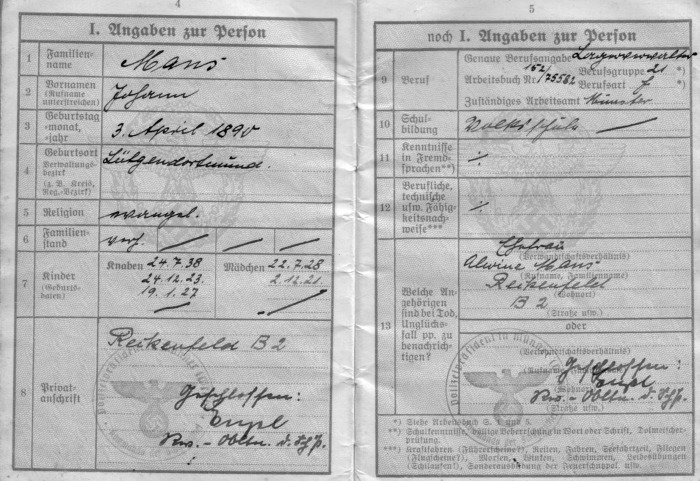 4
I. Angaben zur Person
1 Familien-
name
Mans
2 Vornamen
(Rufname
unterstreichen)
Johann
3 Geburtstag
-monat,
-jahr
3. April 1890
4 Geburtsort
Verwaltungs-
bezirk
(z. B. Kreis,
Reg.-Bezirk)
Lütgendortmund.
5 Religion
evangel.
6 Familien-
stand
verh.
7 Kinder
(Geburts-
daten)
Knaben 24.7.38
24.12.23.
19.1.27
Mädchen 22.7.28
2.12.21.
8 Privat-
anschrift
Reikenfeld B2
Geschlossen:
Rev.-Obltn. d. Sch.
5
noch I. Angaben zur Person
9 Beruf
Genaue Berufsangabe Lagerverwalter
Arbeitsbuch Nr. 152/75582 Berufsgruppe 21 *)
Berufsart f *)
Zuständiges Arbeitsamt Münster
10 Schul-
bildung
Volksschule
11 Kenntnisse
in Fremd-
sprachen**)
÷
12 Berufliche,
technische
usw. Fähig-
keitsnach-
weise***)
÷
13 Welche An-
gehörigen
sind bei Tod,
Unglücks-
fall pp. zu
benachrich-
tigen?
Ehefrau
(Verwandtschaftsverhältnis)
Alwine Mans
(Rufname, Familienname)
Reikenfeld
(Wohnort)
B 2
(Straße usw.)
oder
(Verwandtschaftsverhältnis)
Geschlossen:
(Wohnort)
Rev.-Obltn. d. Sch.
(Straße usw.)
*) Siehe Arbeitsbuch S. 1 und 5.
**) Schulkenntnisse, völlige Beherrschung in Wort oder Schrift, Dolmetscher-
prüfung.
***) Kraftfahren (Führerscheine?), Reiten, Fahren, Seefahrtzeit, Fliegen
(Flugscheine?), Morsen, Winken, Schwimmen, Leibesübungen
(Schilaufen!), Sonderausbildung der Feuerschutzpol. usw.